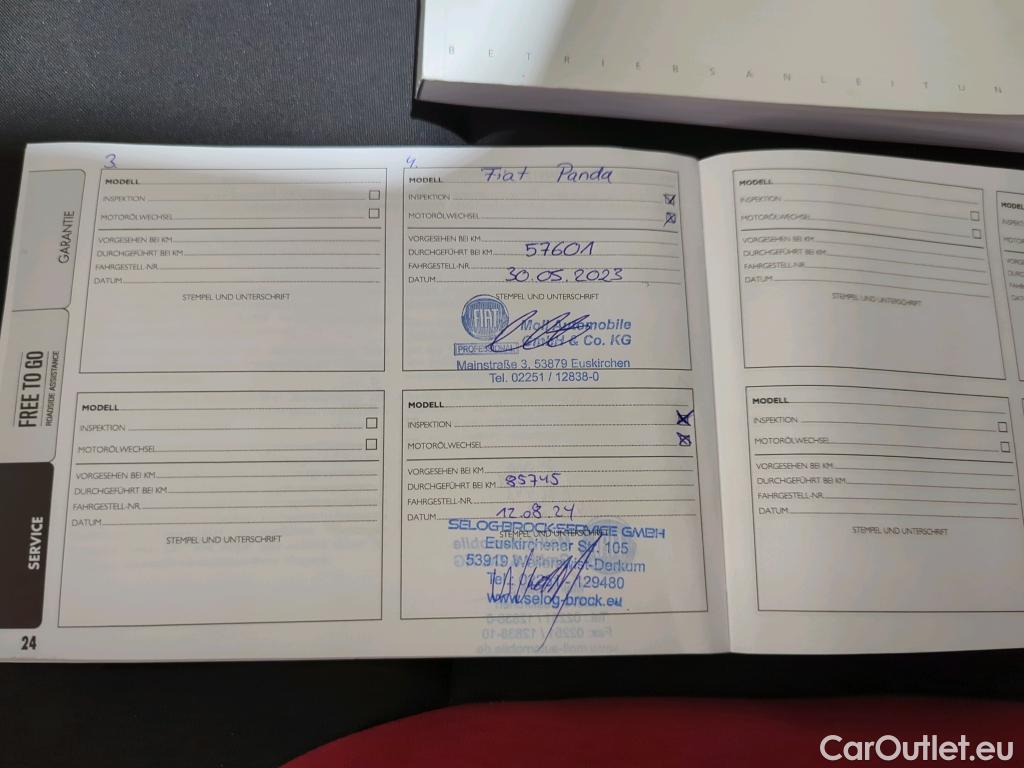 BETRIEBSANLEITUN
GARANTIE
FREE TO GO
ROADSIDE ASSISTANCE
SERVICE
24
3.
MODELL
INSPEKTION
MOTORÖLWECHSEL
VORGESEHEN BEI KM
DURCHGEFÜHRT BEI KM
FAHRGESTELL-NR.
DATUM
STEMPEL UND UNTERSCHRIFT
MODELL
INSPEKTION
MOTORÖLWECHSEL
VORGESEHEN BEI KM
DURCHGEFÜHRT BEI KM
FAHRGESTELL-NR.
DATUM
STEMPEL UND UNTERSCHRIFT
4.
MODELL Fiat Panda
INSPEKTION
MOTORÖLWECHSEL
VORGESEHEN BEI KM
DURCHGEFÜHRT BEI KM 57601
FAHRGESTELL-NR.
DATUM 30.05.2023
STEMPEL UND UNTERSCHRIFT
FIAT
PROFESSIONAL
Moll Automobile
GmbH & Co. KG
Mainstraße 3, 53879 Euskirchen
Tel. 02251 / 12838-0
MODELL
INSPEKTION
MOTORÖLWECHSEL
VORGESEHEN BEI KM
DURCHGEFÜHRT BEI KM 85745
FAHRGESTELL-NR.
DATUM 12.08.24
STEMPEL UND UNTERSCHRIFT
SELOG-BROCK-SERVICE GMBH
Euskirchener Str. 105
53919 Weilerswist-Derkum
129480
www.selog-brock.eu
MODELL
INSPEKTION
MOTORÖLWECHSEL
VORGESEHEN BEI KM
DURCHGEFÜHRT BEI KM
FAHRGESTELL-NR.
DATUM
STEMPEL UND UNTERSCHRIFT
MODELL
INSPEKTION
MOTORÖLWECHSEL
VORGESEHEN BEI KM
DURCHGEFÜHRT BEI KM
FAHRGESTELL-NR.
DATUM
STEMPEL UND UNTERSCHRIFT
CarOutlet.eu